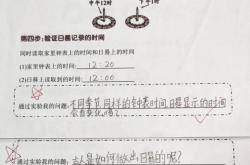 中午12时
中午1时
第四步:验证日晷记录的时间
同时读取家里钟表上的时间和日晷上的时间
(1)家里钟表上的时间: 12:20
(2)日晷上读取到的时间: 12:00
通过实验我的问题: 不同季节,同样的钟表时间,日晷显示的时间
会有变化吗?
通过实验我的问题: 古人是如何做出日晷的呢?